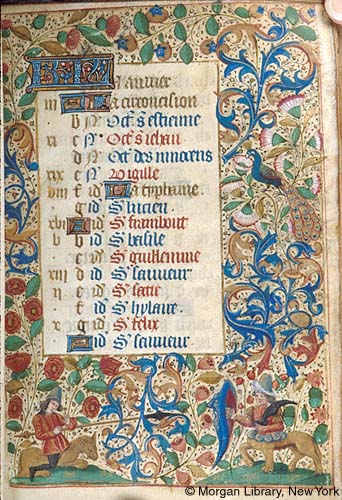 KL Januier
iii A La circoncision
b N Oct s estienne
xi c N Oct s iehan
d N Oct des innocens
xix e N Vigille
viii f id La typhaine
g id S lucien
xvi A id S frambout
v b id S basile
c id S guillemme
xiii d id S sauueur
ii e id S satir
f id S hylaire
x g id S felix
A id S sauueur
© Morgan Library, New York